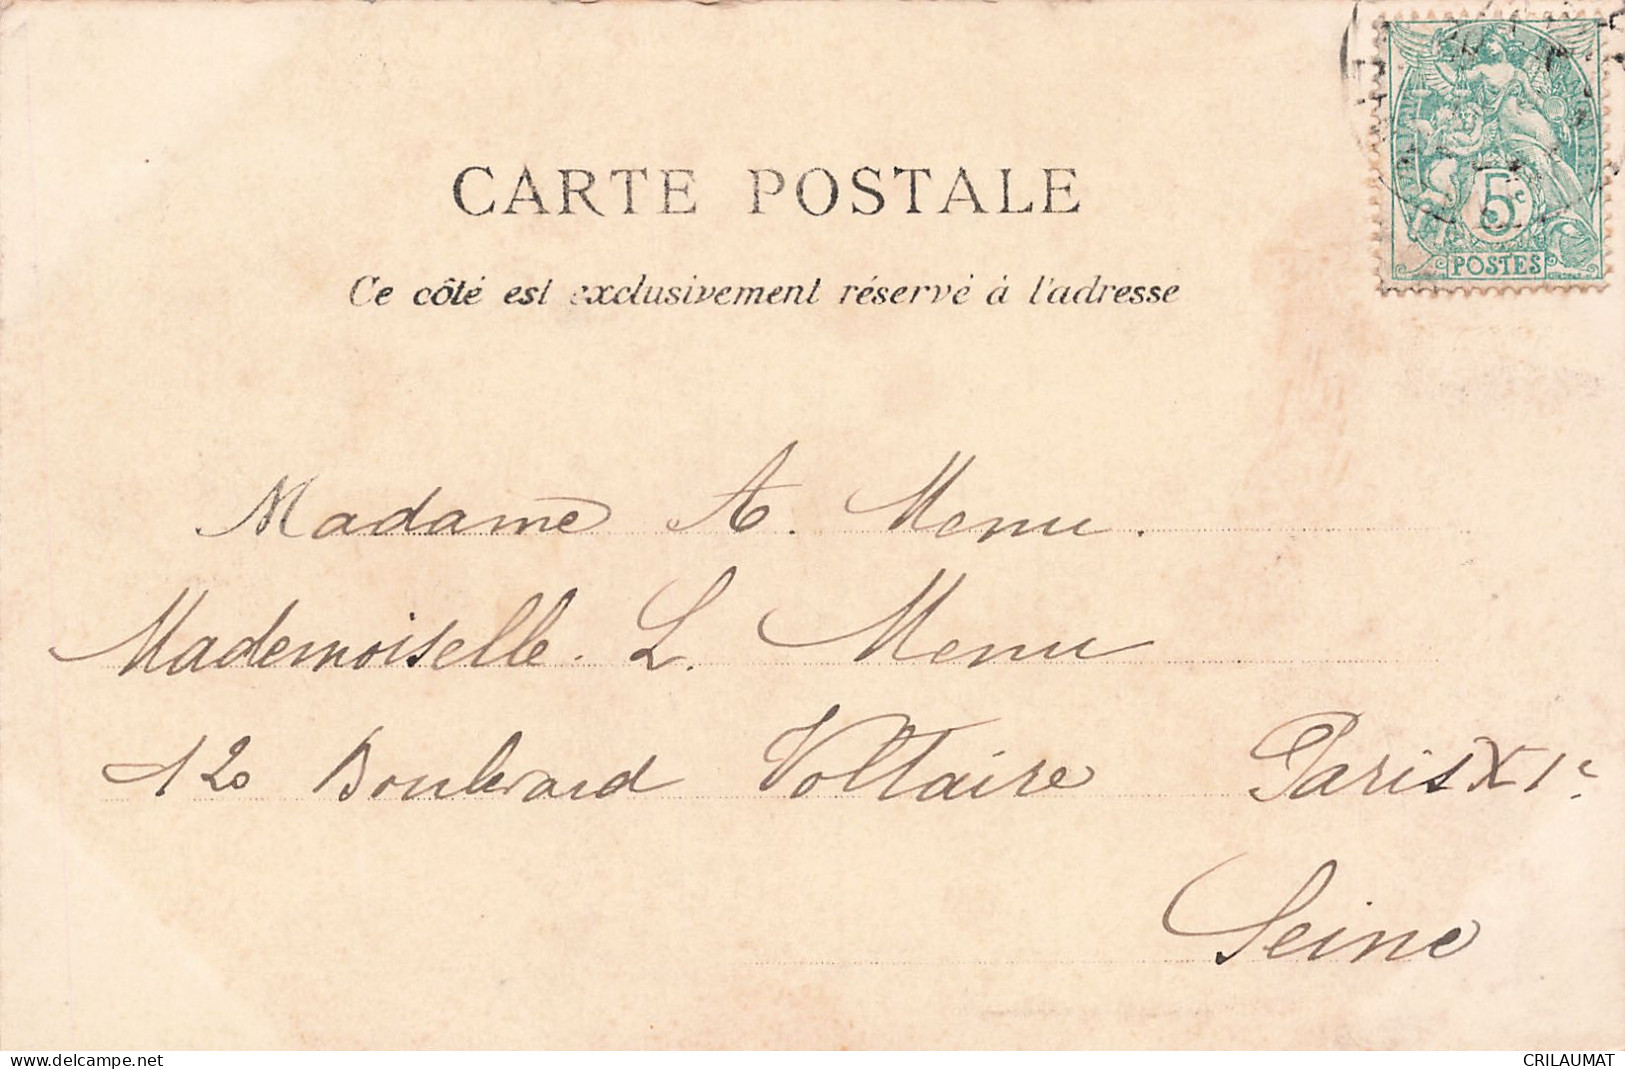 CARTE POSTALE
Ce côté est exclusivement réservé à l'adresse
5c
POSTES
Madame A. Menu.
Mademoiselle. L. Menu
120 Boulevard Voltaire Paris XIe
Seine
www.delcampe.net
CRILAUMAT